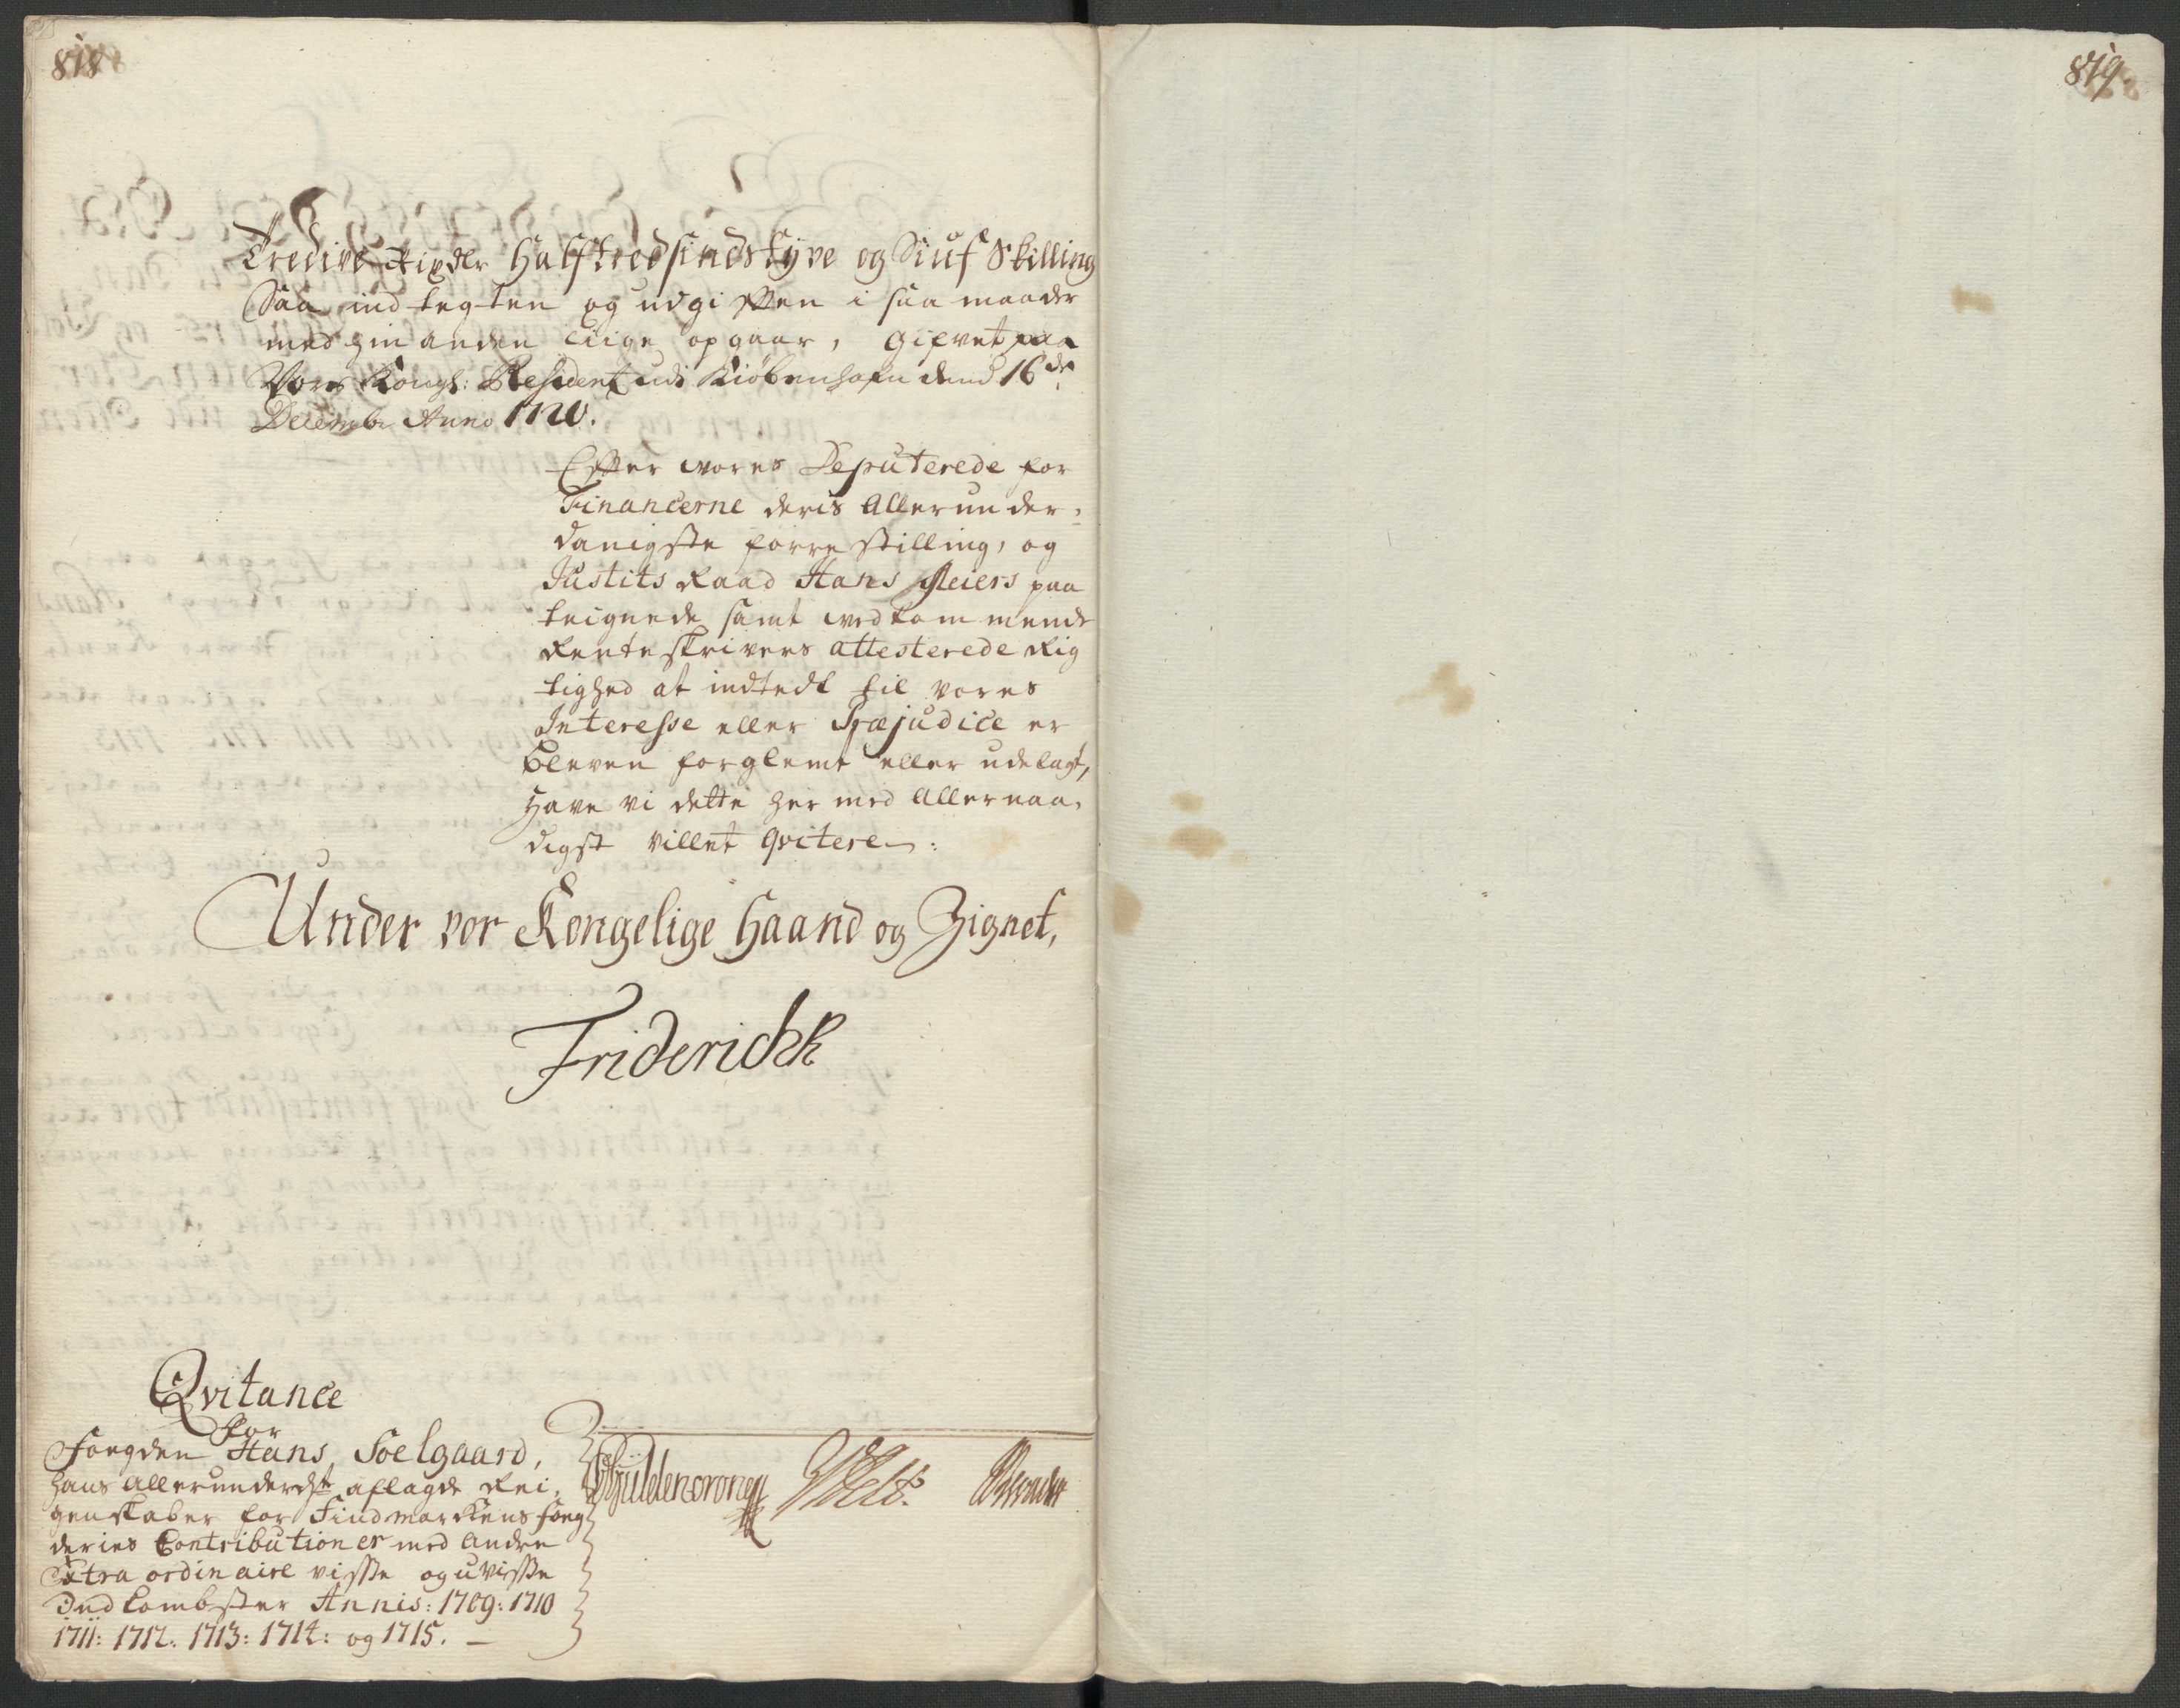 818
819.
Tredive Rixdlr Halftredsindstyve og Siuf Skilling
Saa indtegten og udgiften i saa maader
med hin anden liige opgaar, Gifvet paa
Vores Kongl: Residentz udi Kiøbenhafn dend 16de
Decembr Anno 1720.
Efter vores Deputerede for
Financerne deris Allerunder-
danigste forrestilling, og
Justits Raad Hans Meiers paa
teignede samt vedkommende
Renteskrivers attesterede Rig
tighed at indtedt til vores
Interesse eller Præjudice er
bleven forglemt eller udelagt,
Have vi dette her med Allernaa-
digst villet qvitere.
Under vor Kongelige Haand og Zignet,
Friderich R
Qvitance
for
Fogden Hans Soelgaard,
hans allerunderdgst aflagde Rei-
genskaber for Findmarckens fog
deries Contributioner med Andre
Extra ordinaire visse og uvisse
Indkombster Annis: 1709: 1710
1711: 1712: 1713: 1714: og 1715. –
CGüldencrone